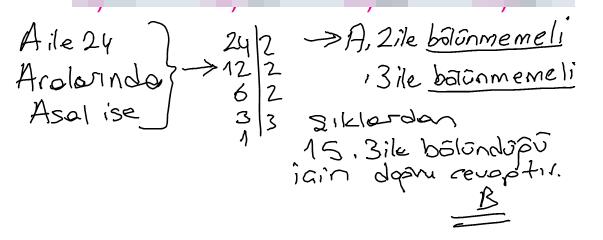 A ile 24
Aralarında
Asal ise
24 2
12 2
6 2
3 3
1
→ A, 2 ile bölünmemeli
, 3 ile bölünmemeli
Şıklardan
15, 3 ile bölündüğü
için doğru cevaptır.
B